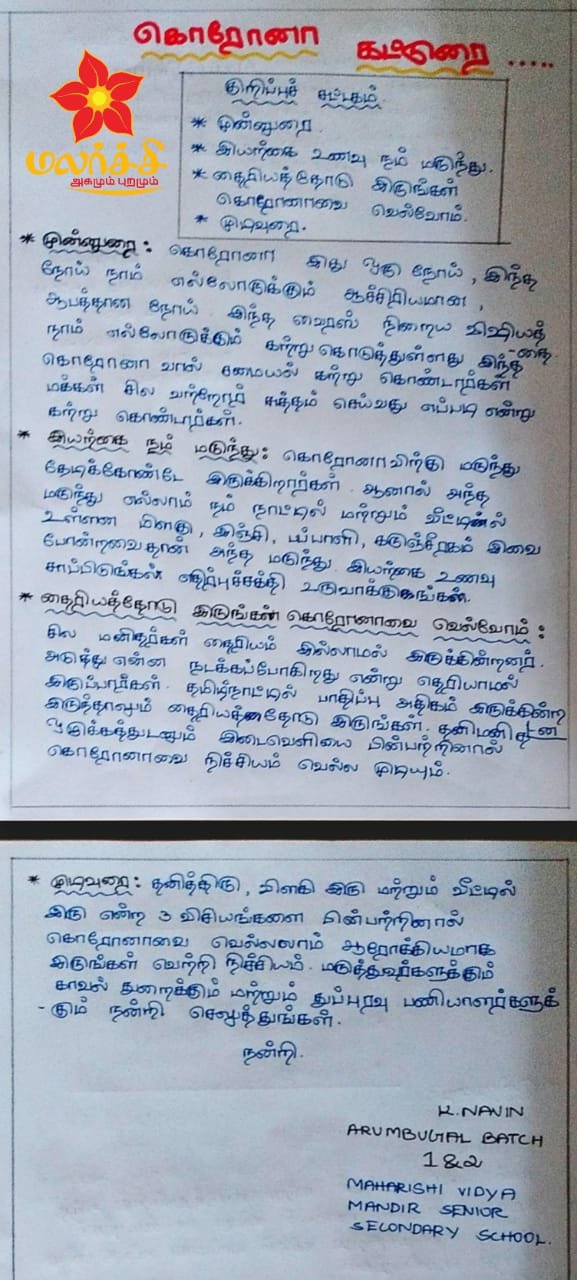 கொரோனா கட்டுரை .....
மலர்ச்சி
அகமும் புறமும்
குறிப்புச் சட்டகம்.
* முன்னுரை.
* இயற்கை உணவு நம் மருந்து.
* தைரியத்தோடு இருங்கள்
கொரோனாவை வெல்வோம்.
* முடிவுரை.
* முன்னுரை : கொரோனா இது ஒரு நோய், இந்த
நோய் நாம் எல்லோருக்கும் ஆச்சிரியமான,
ஆபத்தான நோய். இந்த வைரஸ் நிறைய விஷியத்
நாம் எல்லோருக்கும் கற்று கொடுத்துள்ளது இந்த -தை.
கொரோனா வால் சமையல் கற்று கொண்டார்கள்
மக்கள் சில வற்றோர் சுத்தம் செய்வது எப்படி என்று
கற்று கொண்டார்கள்.
* இயற்கை நம் மருந்து : கொரோனாவிற்கு மருந்து
தேடிக்கோண்டே இருக்கிறார்கள். ஆனால் அந்த
மருந்து எல்லாம் நம் நாட்டில் மற்றும் வீட்டில்
உள்ளன மிளகு, இஞ்சி, பப்பாளி, கருஞ்சீரகம் இவை
போன்றவைதான் அந்த மருந்து. இயற்கை உணவு
சாப்பிடுங்கள் எதிர்புச்சக்தி உருவாக்குகங்கள்.
* தைரியத்தோடு இருங்கள் கொரோனாவை வெல்வோம் :
சில மனிதர்கள் தைரியம் இல்லாமல் இருக்கின்றனர்.
அடுத்து என்ன நடக்கப்போகிறது என்று தெரியாமல்
இருப்பார்கள். தமிழ்நாட்டில் பாதிப்பு அதிகம் இருக்கின்ற
இருந்தாலும் தைரியத்தோடு இருங்கள். தனிமனிதன்
ஒழுக்கத்துடனும் இடைவெளியை பின்பற்றினால்
கொரோனாவை நிச்சியம் வெல்ல முடியும்.
* முடிவுரை : தனித்திரு, விளகி இரு மற்றும் வீட்டில்
இரு என்ற 3 விசியங்களை பின்பற்றினால்
கொரோனாவை வெல்லலாம் ஆரோக்கியமாக
இருங்கள் வெற்றி நிச்சியம். மருத்துவர்களுக்கும்
காவல் துறைக்கும் மற்றும் துப்புரவு பணியாளர்களுக்
- கும் நன்றி செலுத்துங்கள்.
நன்றி.
K. NAVIN
ARUMBUGAL BATCH
1 & 2
MAHARISHI VIDYA
MANDIR SENIOR
SECONDARY SCHOOL.